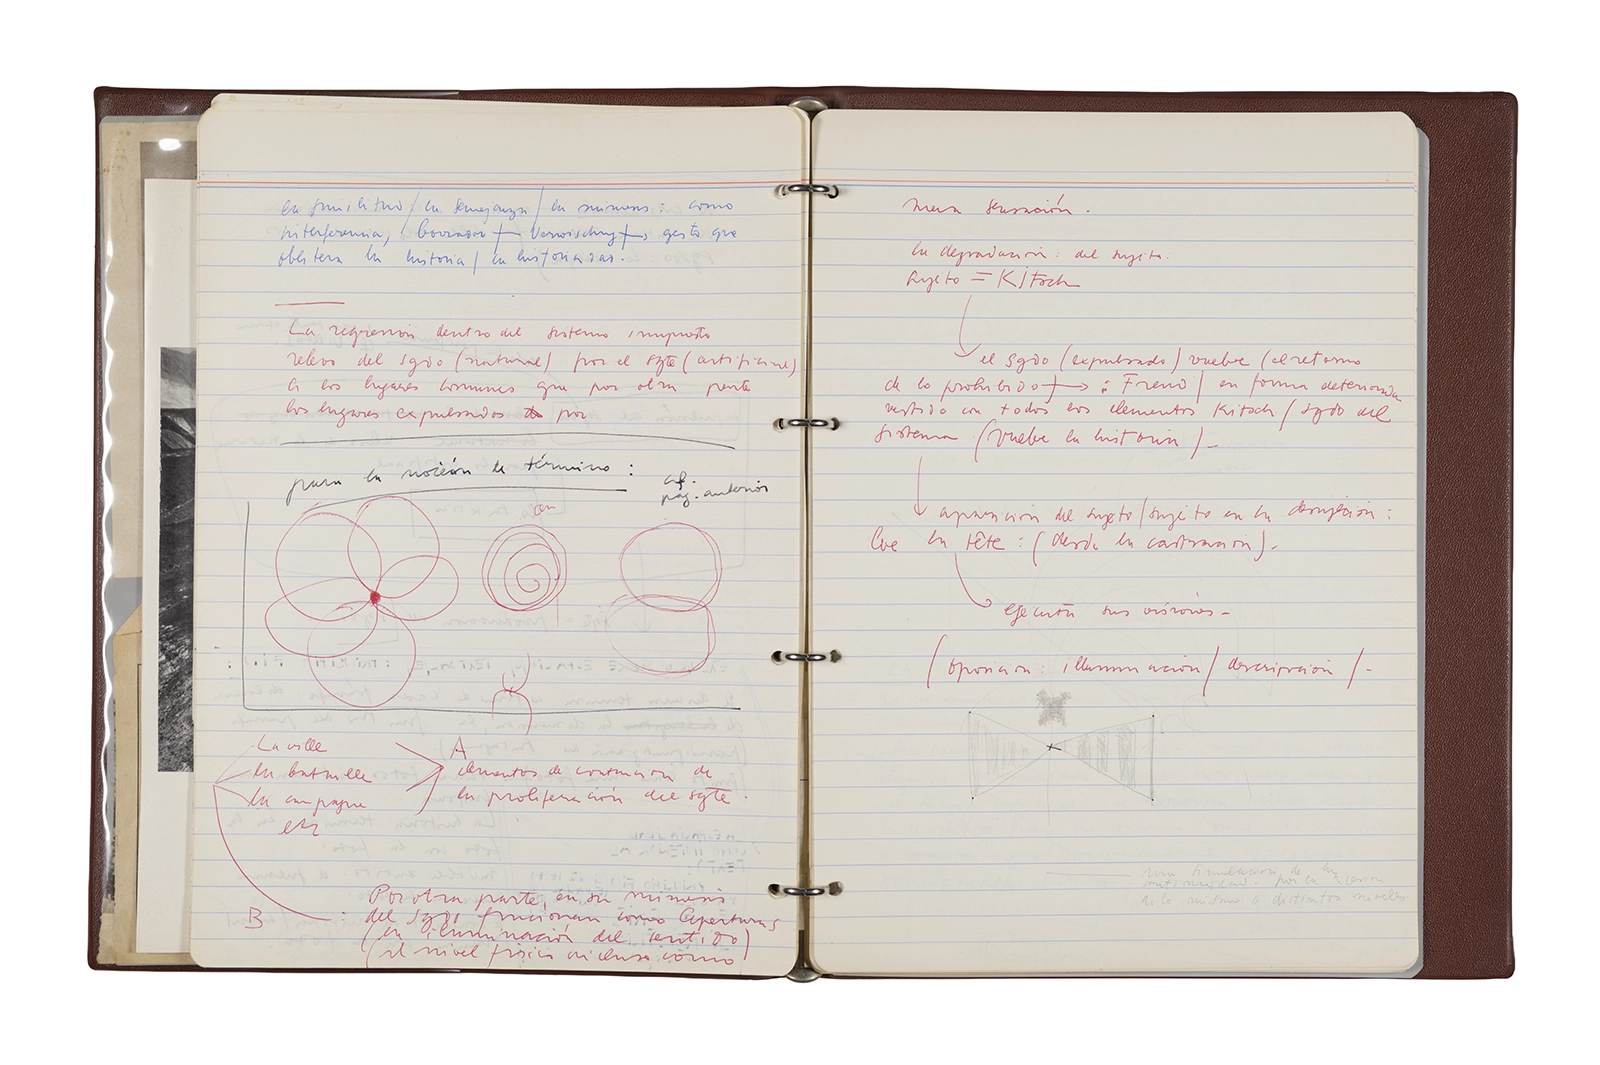 la similitud / la semejanza / la mimesis: como
interferencia, borrador Verwischung gesto que
oblitera la historia /
La regresión dentro del sistema impuesto
relevo del sgdo (natural) por el sgte (artificial)
a los lugares comunes que por otra parte
los lugares expulsados por
para la noción de término:
cf.
pag. anterior
La ville
la bataille
la campagne
etc
A
elementos de contracion de
la proliferación del sgte.
B
: Por otra parte, en su mimesis
del sgdo funcionan como aperturas
(en iluminación del sentido)
(al nivel físico incluso como
mera sensación.
la degradación: del sujeto:
sujeto = Kitsch
el sgdo (expulsado) vuelve (el retorno
de lo prohibido : Freud / en forma deteriorada
vestido con todos los elementos Kitsch / sgdo del
sistema. (vuelve la historia).
aparición del sujeto / sujeto en la :
la tête: (desde la castración).
ejecuta sus visiones.
(oposicion: illuminación / descripción /.
una simulación de la
continuidad. por la
de lo mismo a distintos niveles